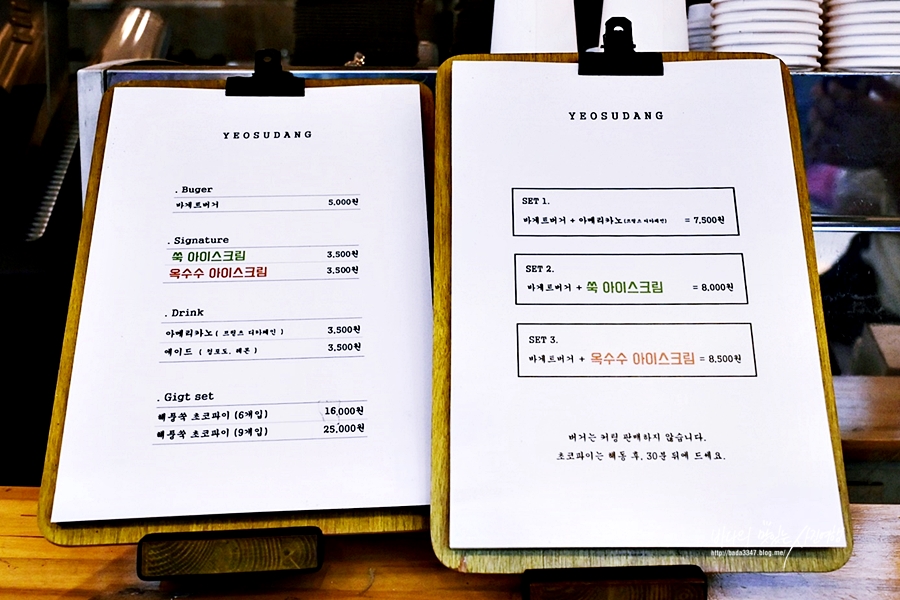 YEOSUDANG
. Buger
바게트버거 5,000원
. Signature
쑥 아이스크림 3,500원
옥수수 아이스크림 3,500원
. Drink
아메리카노 ( 프랑스 디카페인 ) 3,500원
에이드 ( 청포도, 레몬 ) 3,500원
. Gigt set
해풍쑥 초코파이 (6개입) 16,000원
해풍쑥 초코파이 (9개입) 25,000원
YEOSUDANG
SET 1.
바게트버거 + 아메리카노(프랑스 디카페인) = 7,500원
SET 2.
바게트버거 + 쑥 아이스크림 = 8,000원
SET 3.
바게트버거 + 옥수수 아이스크림 = 8,500원
버거는 커팅 판매하지 않습니다.
초코파이는 해동 후, 30분 뒤에 드세요.
http://bada3347.blog.me/